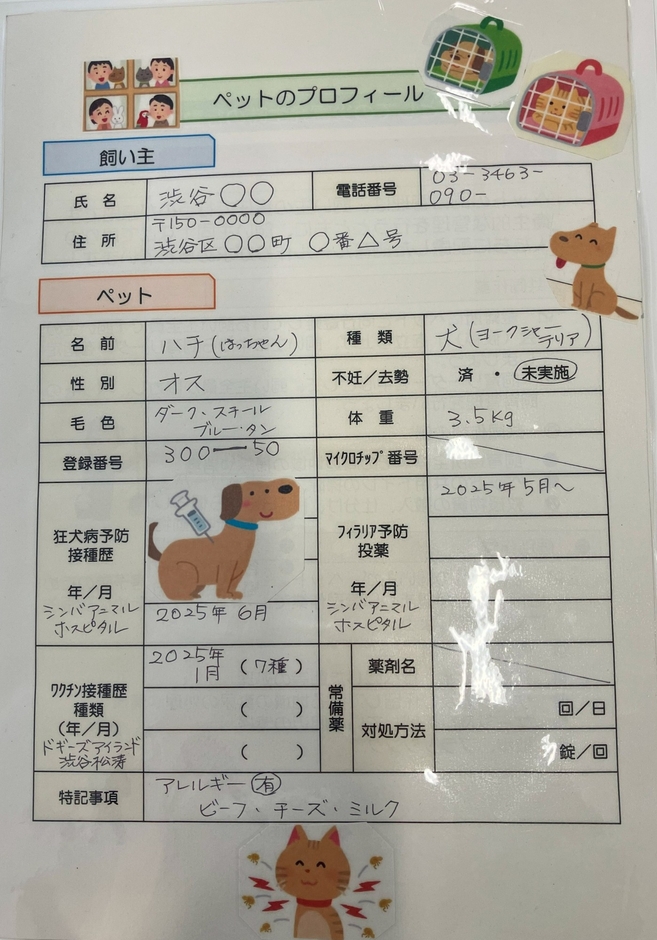 ペットのプロフィール
飼い主
氏 名 渋谷〇〇 電話番号 03-3463-
090-
住 所 〒150-0000
渋谷区〇〇町 〇番△号
ペット
名 前 ハチ(はっちゃん) 種 類 犬(ヨークシャー
テリア)
性 別 オス 不妊/去勢 済 ・ 未実施
毛 色 ダーク・スチール
ブルー・タン
体 重 3.5kg
登録番号 300ー50 マイクロチップ番号
狂犬病予防
接種歴
年/月
シンバアニマル
ホスピタル
2025年 6月
フィラリア予防
投薬
年/月
シンバアニマル
ホスピタル
2025年5月〜
ワクチン接種歴
種類
(年/月)
ドギーズアイランド
渋谷松濤
2025年
1月 (7種)
( )
( )
常備薬
薬剤名
対処方法
回/日
錠/回
特記事項 アレルギー 有
ビーフ・チーズ・ミルク